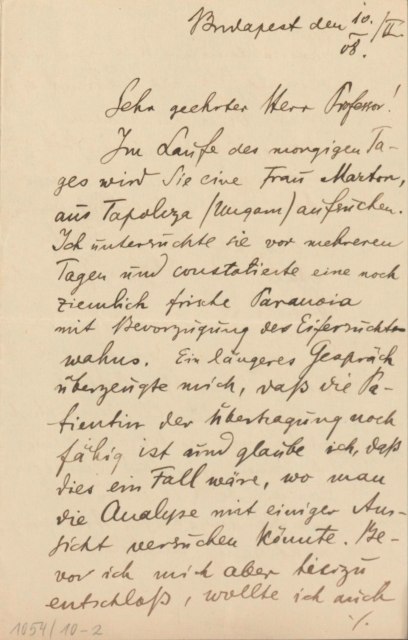 Budapest den 10./II.
08.
Sehr geehrter Herr Professor!
Im Laufe des morgigen Ta-
ges wird Sie eine Frau Marton,
aus Tapolcza (Ungarn) aufsuchen.
Ich untersuchte sie vor mehreren
Tagen und constatierte eine noch
ziemlich frische Paranoia
mit Bevorzugung des Eifersuchts-
wahns. Ein längeres Gespräch
überzeugte mich, daß die Pa-
tientin der Übertragung noch
fähig ist und glaube ich, daß
dies ein Fall wäre, wo man
die Analyse mit einiger Aus-
sicht versuchen könnte. Be-
vor ich mich aber hiezu
entschloß, wollte ich auch
./.
1054/10-2